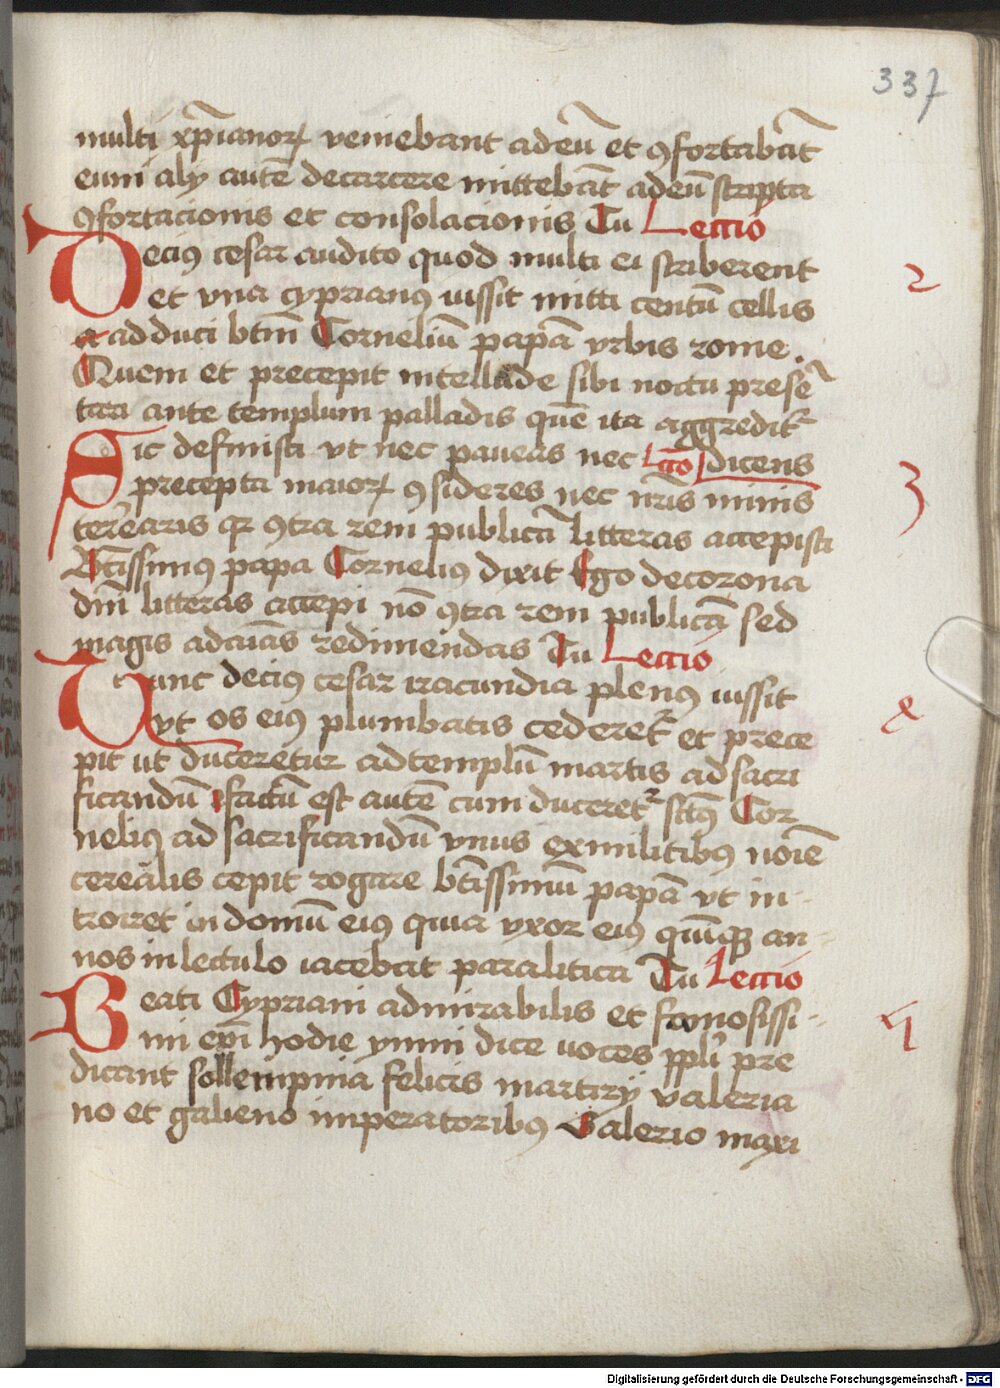 337
multi xp̄ianoꝝ veniebant ad eū et ꝯfortabāt
eum alij autē de carcere mittebāt ad eū scripta
ꝯfortacionis et consolacionis Tu Leccio
Deciꝰ cesar audito quod multi ei scriberent 2
et vna cyprianꝰ iussit mitti centū cellis
et adduci btm̄ Corneliū papā vrbis rome .
Quem et precepit intellude sibi noctu presē
tari ante templum palladis quē ita aggreditᷣ
Sic definisti vt nec paveas nec lc̄o dicens 3
precepta maioꝝ ꝯsideres nec nr̄is minis
terrearis qꝛ ꝯtra rem publicā litteras accepisti
Btissimꝰ papa Corneliꝰ dixit Ego de corona
dm̄ litteras accepi nō ꝯtra rem publicā sed
magis ad aīas redimendas Tu Leccio
Tunc deciꝰ cesar iracundia plenꝰ iussit 4
vt os eiꝰ plumbatis cederetᷣ et prece
pit ut duceretur ad templū martis ad sacri
ficandū factū est autē cum duceretᷣ sctꝰ Cor
neliꝰ ad sacrificandū vnus ex militibꝰ noīe
cerealis cepit rogare btissimū papā vt in-
troiret in domū eiꝰ quia vxor eiꝰ quīqꝫ an-
nos in lectulo iacebat paralitica Tu Leccio
Beati Cypriani admirabilis et famosissi- 5
mi ep̄i hodie ymni dice voces ppl̄i pre
dicant sollempnia felicis martirij valeria
no et galieno imperatoribꝰ Valerio maxi
Digitalisierung gefördert durch die Deutsche Forschungsgemeinschaft - DFG